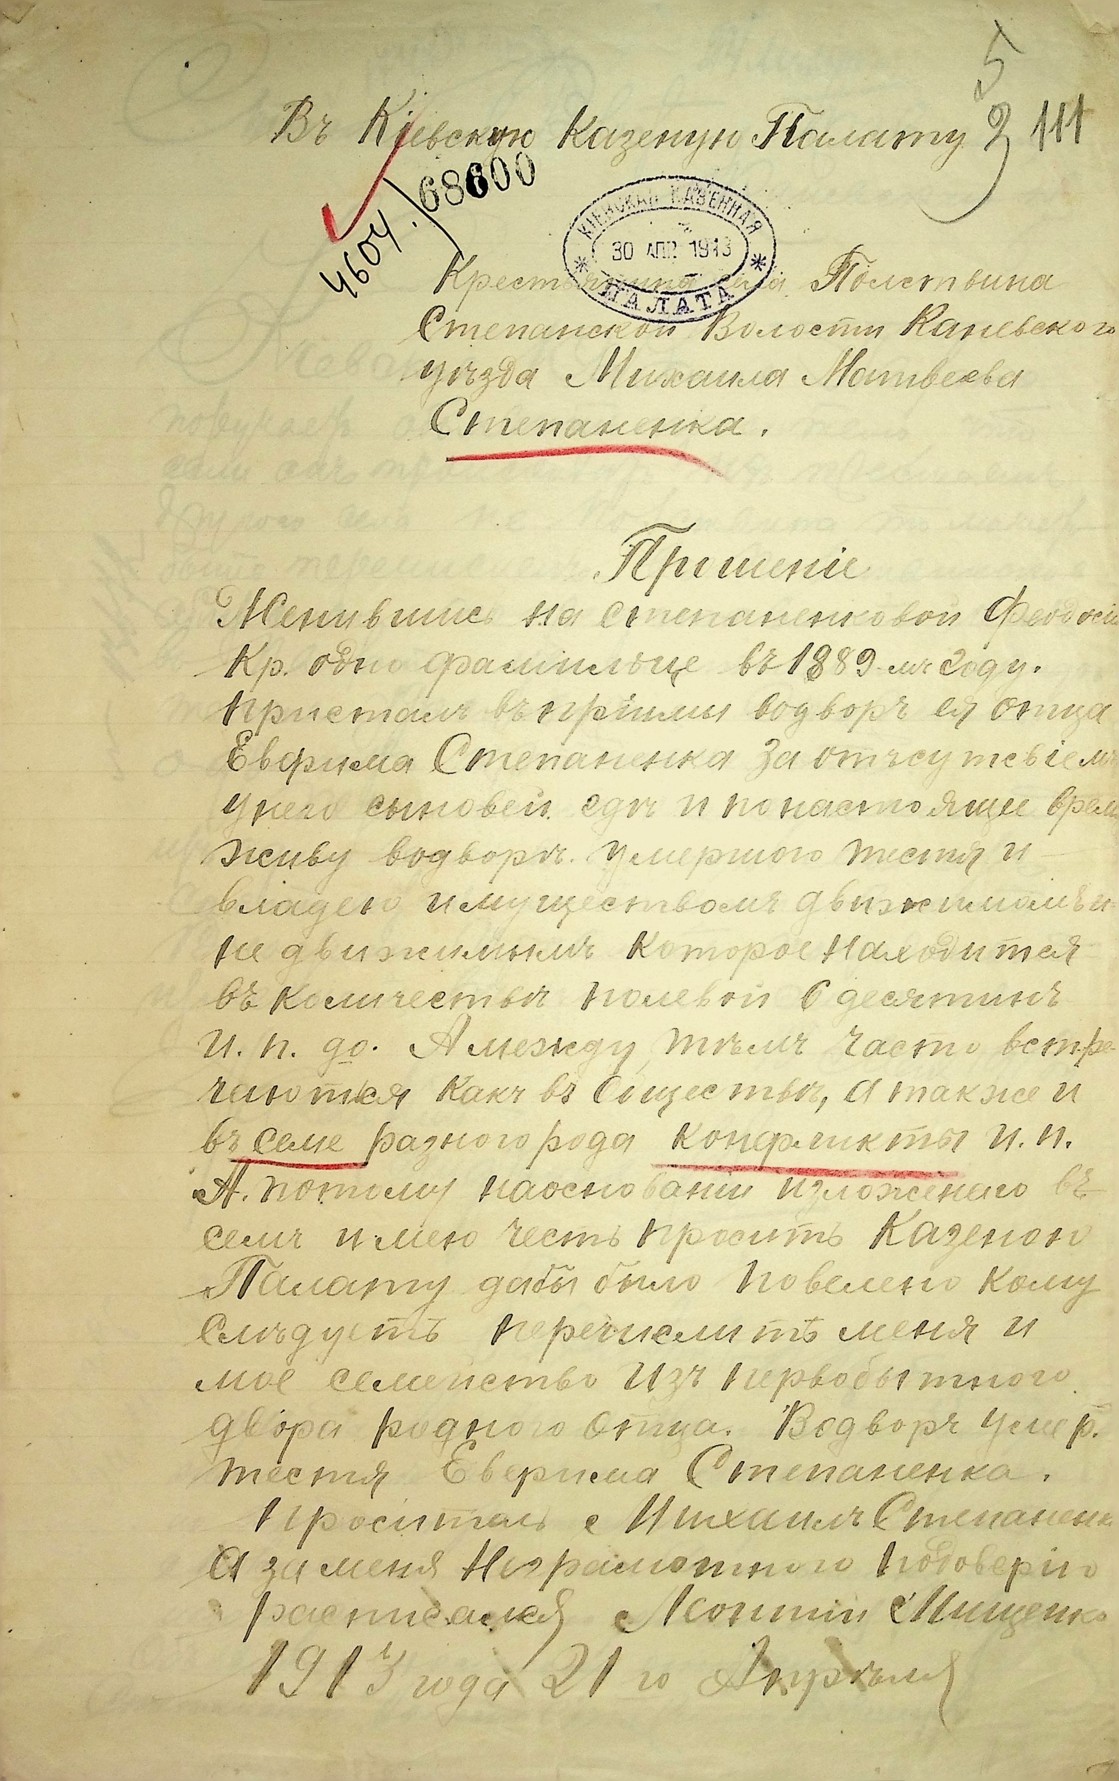 5
Въ Кіевскую Казеную Палату
2 111
4604. 68600
КІЕВСКАЯ КАЗЕННАЯ
30 АПР 1913
ПАЛАТА
Крестьянина села Полствина
Степанской Волости Каневского
уѣзда Михаила Матвеева
Степаненка.
Прошеніе
Женившись на Степаненковой Феодосіи
Кр. одно фамильце въ 1889 мъ году.
присталъ въ прiймы водворъ ея отца
Евфима Степаненка За отъсутсвіемъ
унего сыновей, гдѣ и по настоящие время
живу водворѣ умершого тестя и
владею имуществомъ движимымъ и
не движимымъ которое находится
въ количествѣ полевой 6 десятинъ
и. п. до. А между тѣмъ часто встре
чаются какъ въ Обществѣ, а также и
въ семе разного рода конфликты и. п.
А. потому наосновании изложенаго въ
семъ имею честь просить Казеною
Палату дабы было повелено кому
слѣдуетъ перечислить меня и
мое семейство изъ первобытного
двора родного отца. Водворъ умер.
тестя Еверима Степаненка.
Проситель Михаилъ Степаненк
А за меня Неграмотного подоверію
расписался Леонтий Мищенко
1913 года 21 го Апрѣля